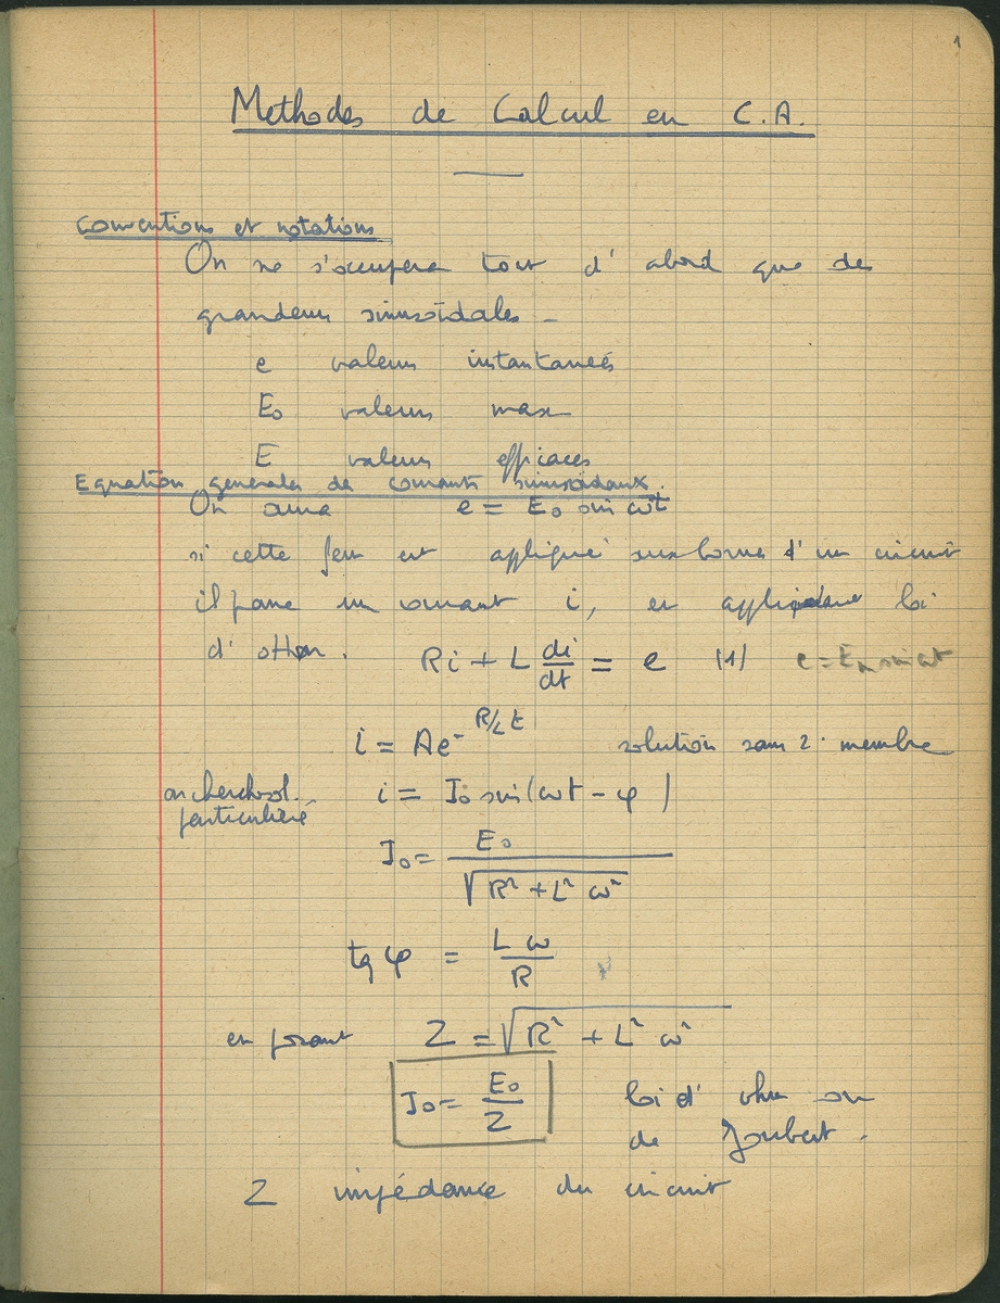 1
Methodes de Calcul en C.A.
Conventions et notations
On ne s'occupera tout d'abord que de
grandeurs sinusoïdales -
e valeurs instantaneés
E₀ valeurs max
E valeurs efficaces
Equation generales de courants sinusoidaux.
On aura e = E₀ sin ωt
si cette fem est appliqué aux borne d'un circuit
il passe un courant i, en appliquant loi
d'ohm. Ri + L di/dt = e (1) e = Eₘ sin ωt
i = Ae^(- R/L t) solution sans 2ᵉ membre
on cherche sol. i = I₀ sin(ωt - φ)
particulière
I₀ = E₀ / √(R² + L² ω²)
tg φ = Lω / R
en posant Z = √(R² + L² ω²)
I₀ = E₀ / Z loi d'ohm ou
de Joubert.
Z impédance du circuit